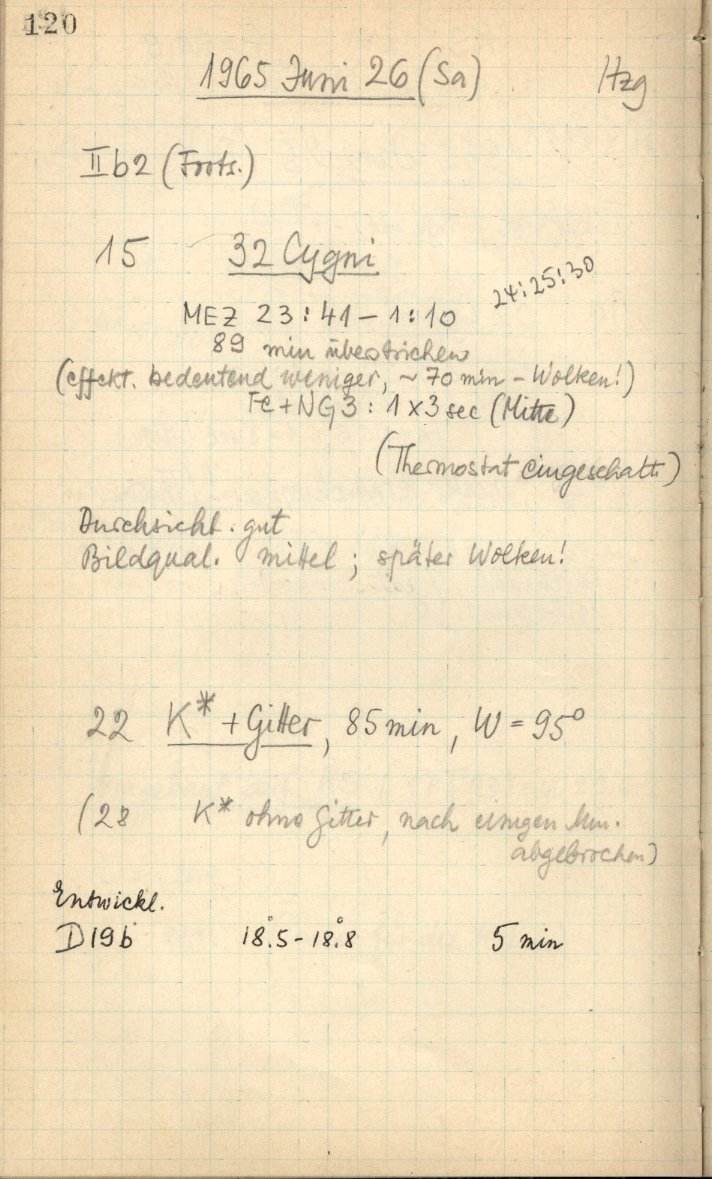 120
1965 Juni 26 (Sa) Hzg
II b2 (Forts.)
15 32 Cygni
24:25:30
MEZ 23:41 – 1:10
89 min überstrichen
(effekt. bedeutend weniger, ~ 70 min – Wolken!)
Fe+NG3: 1x3 sec (Mitte)
(Thermostat eingeschalt.)
Durchsicht. gut
Bildqual. mittel; später Wolken!
22 K* + Gitter, 85 min, W = 95°
(28 K* ohne Gitter, nach einigen Min.
abgebrochen)
Entwickl.
D19b 18°.5 - 18°.8 5 min